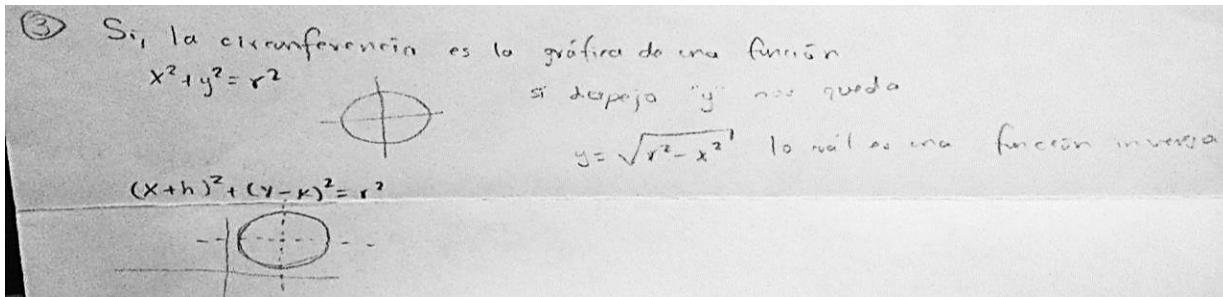 ③ Si, la circunferencia es la gráfica de una función
x² + y² = r²
si despejo "y" nos queda
y = √(r² - x²) lo cuál es una función inversa
(x+h)² + (y-k)² = r²